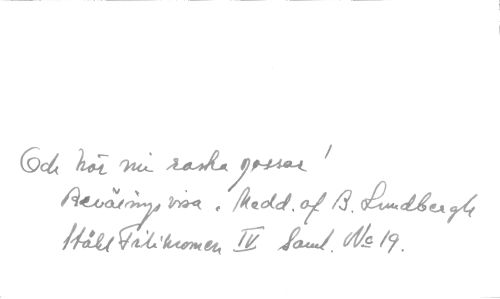 Och hör ni raska gossar!
Bevärings visa. Medd. af B. Lundbergh
Ståhl Filikromen IV Saml. No 19.